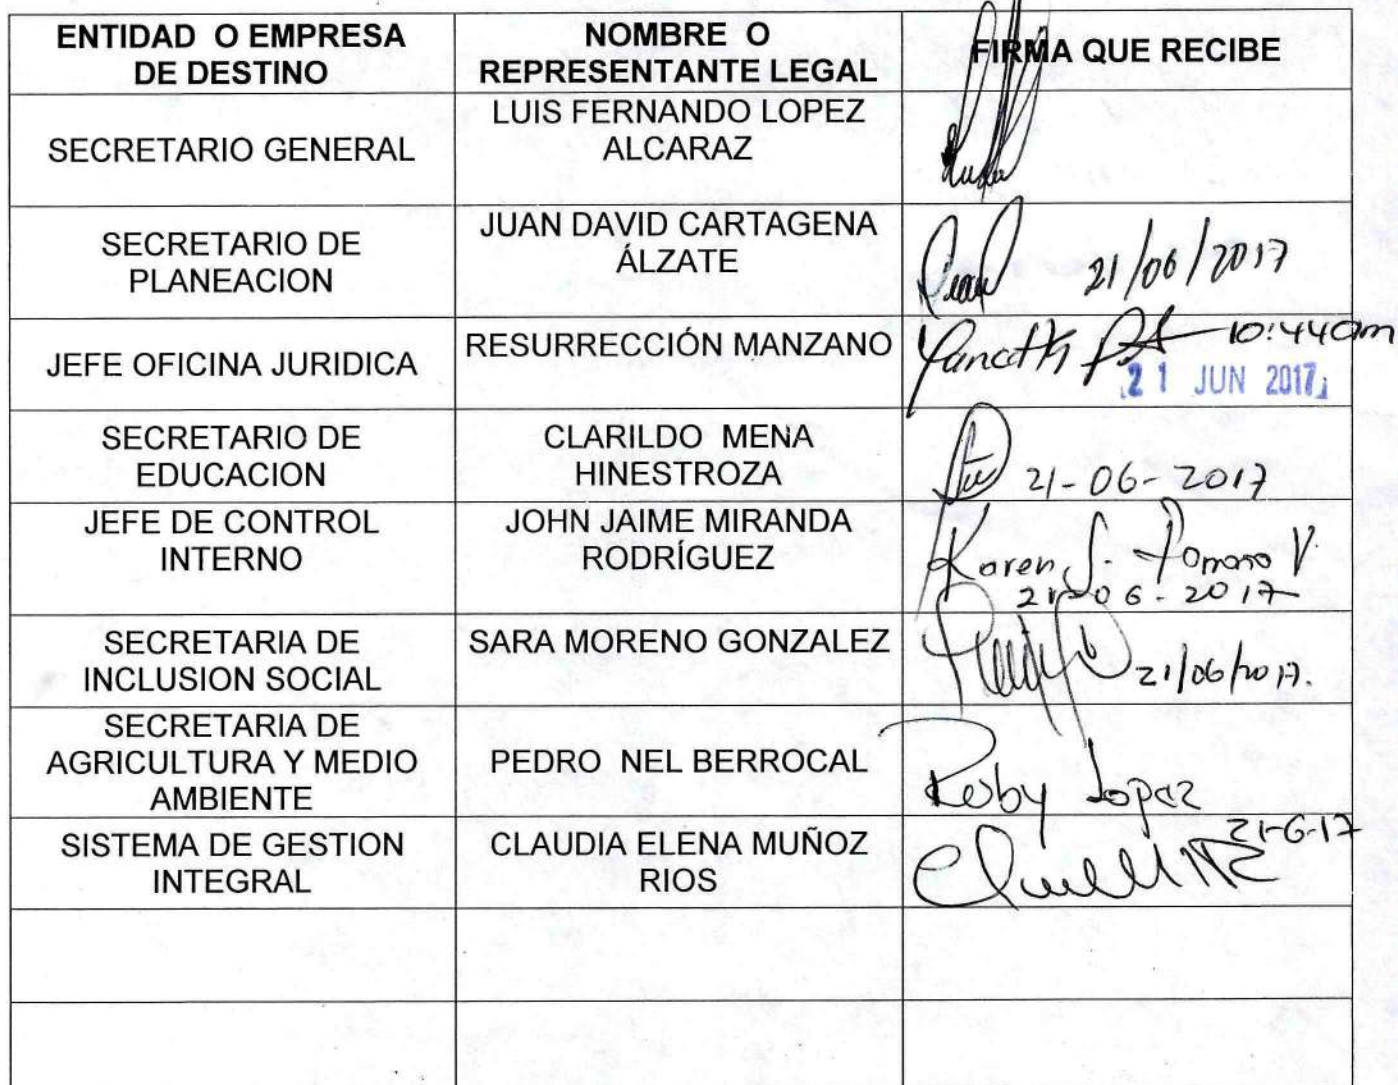 ENTIDAD O EMPRESA
DE DESTINO
NOMBRE O
REPRESENTANTE LEGAL
FIRMA QUE RECIBE
SECRETARIO GENERAL
LUIS FERNANDO LOPEZ
ALCARAZ
SECRETARIO DE
PLANEACION
JUAN DAVID CARTAGENA
ÁLZATE
21/06/2017
JEFE OFICINA JURIDICA
RESURRECCIÓN MANZANO
10:44am
21 JUN 2017
SECRETARIO DE
EDUCACION
CLARILDO MENA
HINESTROZA
21-06-2017
JEFE DE CONTROL
INTERNO
JOHN JAIME MIRANDA
RODRÍGUEZ
Karen S.
21-06-2017
SECRETARIA DE
INCLUSION SOCIAL
SARA MORENO GONZALEZ
21/06/2017.
SECRETARIA DE
AGRICULTURA Y MEDIO
AMBIENTE
PEDRO NEL BERROCAL
Lopez
SISTEMA DE GESTION
INTEGRAL
CLAUDIA ELENA MUÑOZ
RIOS
21-6-17